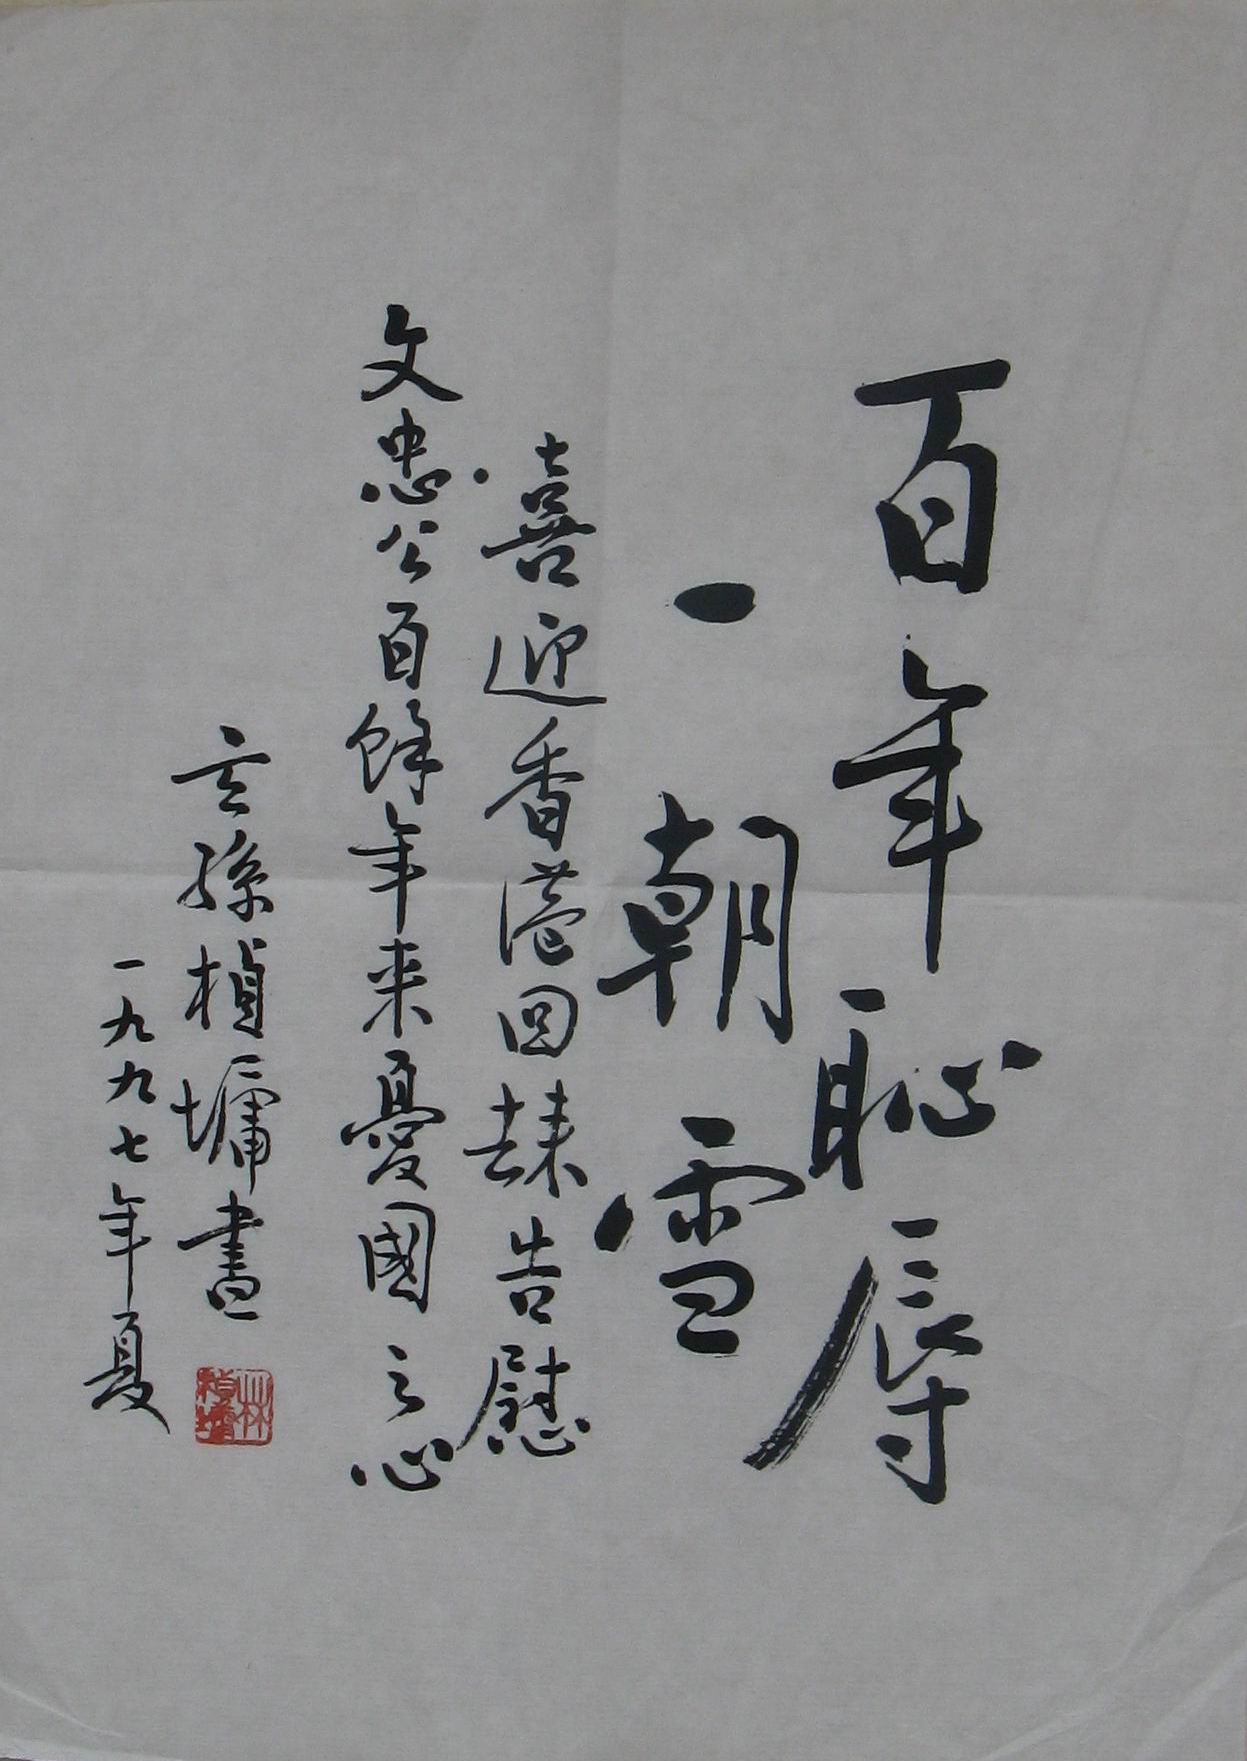 百年恥辱
一朝雪
喜迎香港回歸告慰
文忠公百餘年來憂國之心
玄孫楨墉書
一九九七年夏
林楨墉